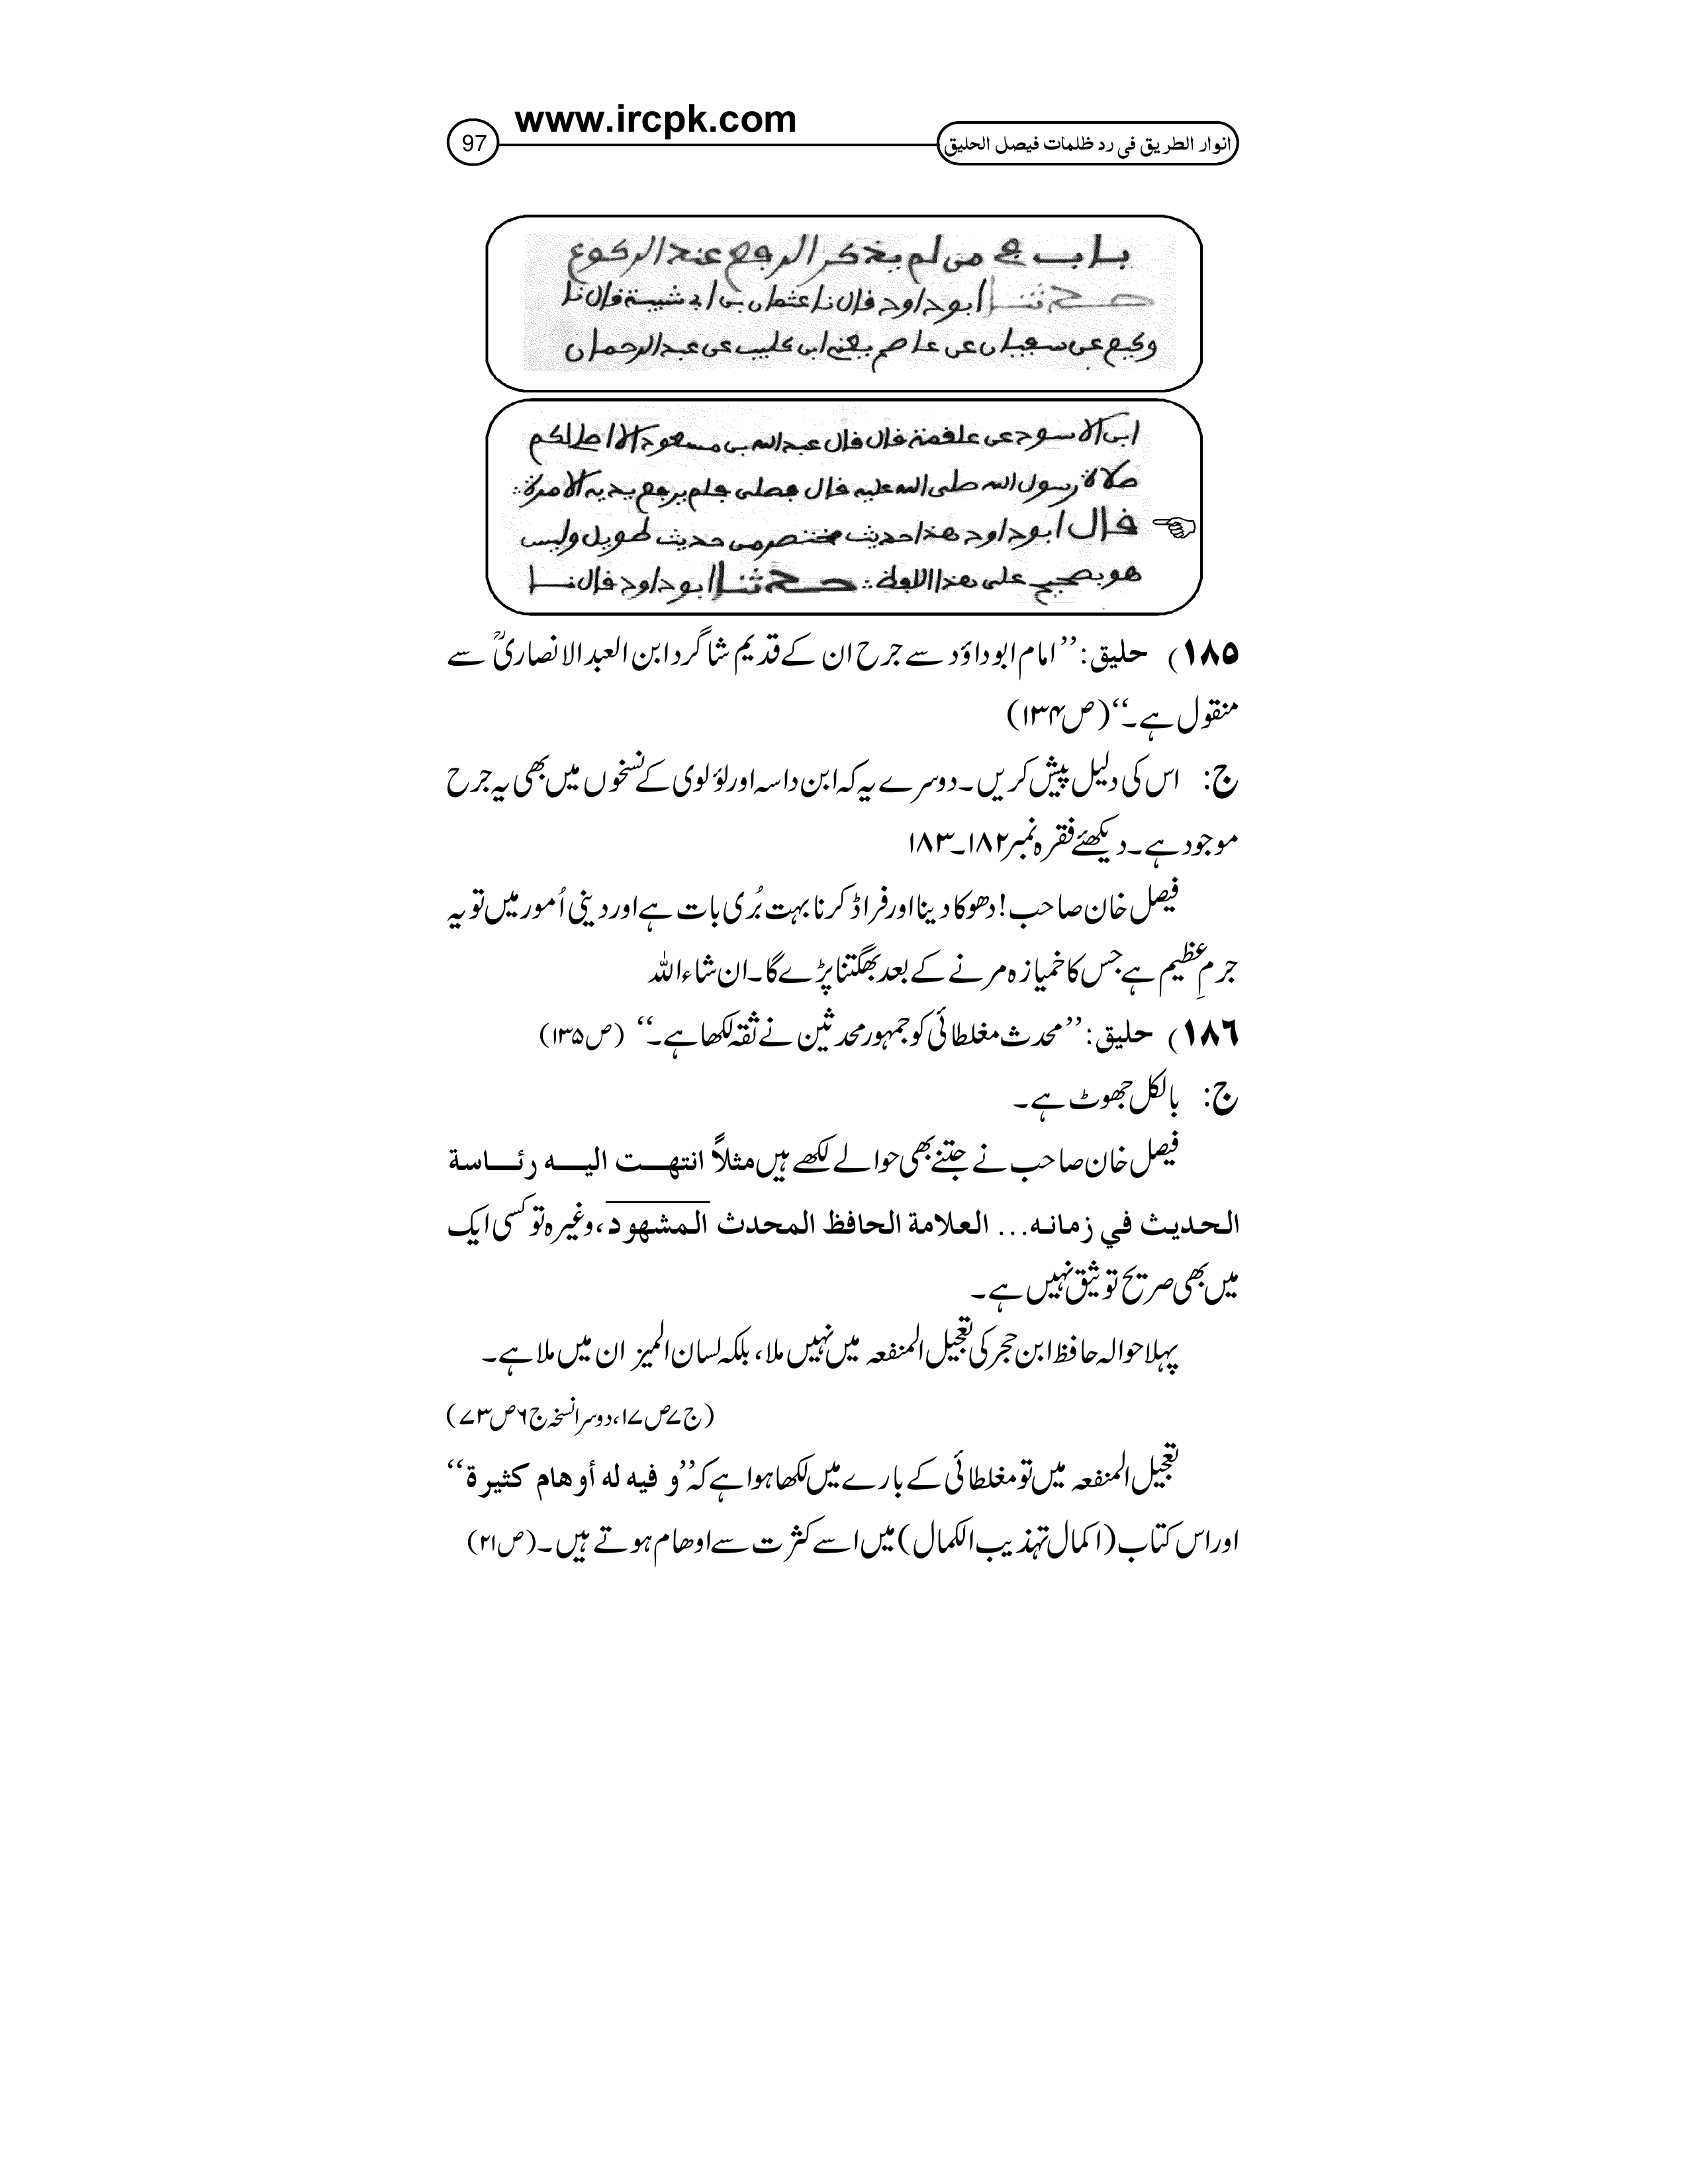 www.ircpk.com
انوار الطریق فی رد ظلمات فیصل الحلیق
97
باب في من لم يذكر الرفع عند الركوع
حدثنا ابو داود قال نا عثمان بن ابي شيبة قال نا
وكيع عن سفيان عن عاصم يعني ابن كليب عن عبد الرحمان
ابن الاسود عن علقمة قال قال عبد الله بن مسعود الا اصلي لكم
صلاة رسول الله صلى الله عليه قال فصلى فلم يرفع يديه الا مرة
قال ابو داود هذا حديث مختصر من حديث طويل وليس
هو بصحيح على هذا اللفظ حدثنا ابو داود قال نا
۱۸۵) حلیق: ’’امام ابو داؤد سے جرح ان کے قدیم شاگرد ابن العبد الانصاریؒ سے
منقول ہے۔‘‘ (ص۱۳۴)
ج: اس کی دلیل پیش کریں۔ دوسرے یہ کہ ابن داسہ اور لؤلوی کے نسخوں میں بھی یہ جرح
موجود ہے۔ دیکھئے فقرہ نمبر ۱۸۲۔۱۸۳
فیصل خان صاحب! دھوکا دینا اور فراڈ کرنا بہت بُری بات ہے اور دینی اُمور میں تو یہ
جرمِ عظیم ہے جس کا خمیازہ مرنے کے بعد بھگتنا پڑے گا۔ ان شاء اللہ
۱۸۶) حلیق: ’’محدث مغلطائی کو جمہور محدثین نے ثقہ لکھا ہے۔‘‘ (ص۱۳۵)
ج: بالکل جھوٹ ہے۔
فیصل خان صاحب نے جتنے بھی حوالے لکھے ہیں مثلاً انتهت اليه رئاسة
الحديث في زمانه... العلامة الحافظ المحدث المشهود، وغیرہ تو کسی ایک
میں بھی صریح توثیق نہیں ہے۔
پہلا حوالہ حافظ ابن حجر کی تعجیل المنفعہ میں نہیں ملا، بلکہ لسان المیزان میں ملا ہے۔
(ج۷ص۱۷، دوسرا نسخہ ج۶ص۷۳)
تعجیل المنفعہ میں تو مغلطائی کے بارے میں لکھا ہوا ہے کہ ’’و فيه له أوهام كثيرة‘‘
اور اس کتاب (اکمال تہذیب الکمال) میں اسے کثرت سے اوھام ہوتے ہیں۔ (ص۲۱)